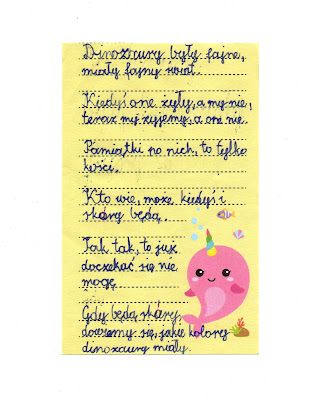 Dinozaury były fajne,
miały fajny świat.
Kiedyś one żyły, a my nie,
teraz my żyjemy, a one nie.
Pamiątki po nich, to tylko
kości.
Kto wie, może kiedyś i
skóry będą.
Tak tak, to już
doczekać się nie
mogę
Gdy będą skóry,
dowiemy się, jakie kolory
dinozaury miały.